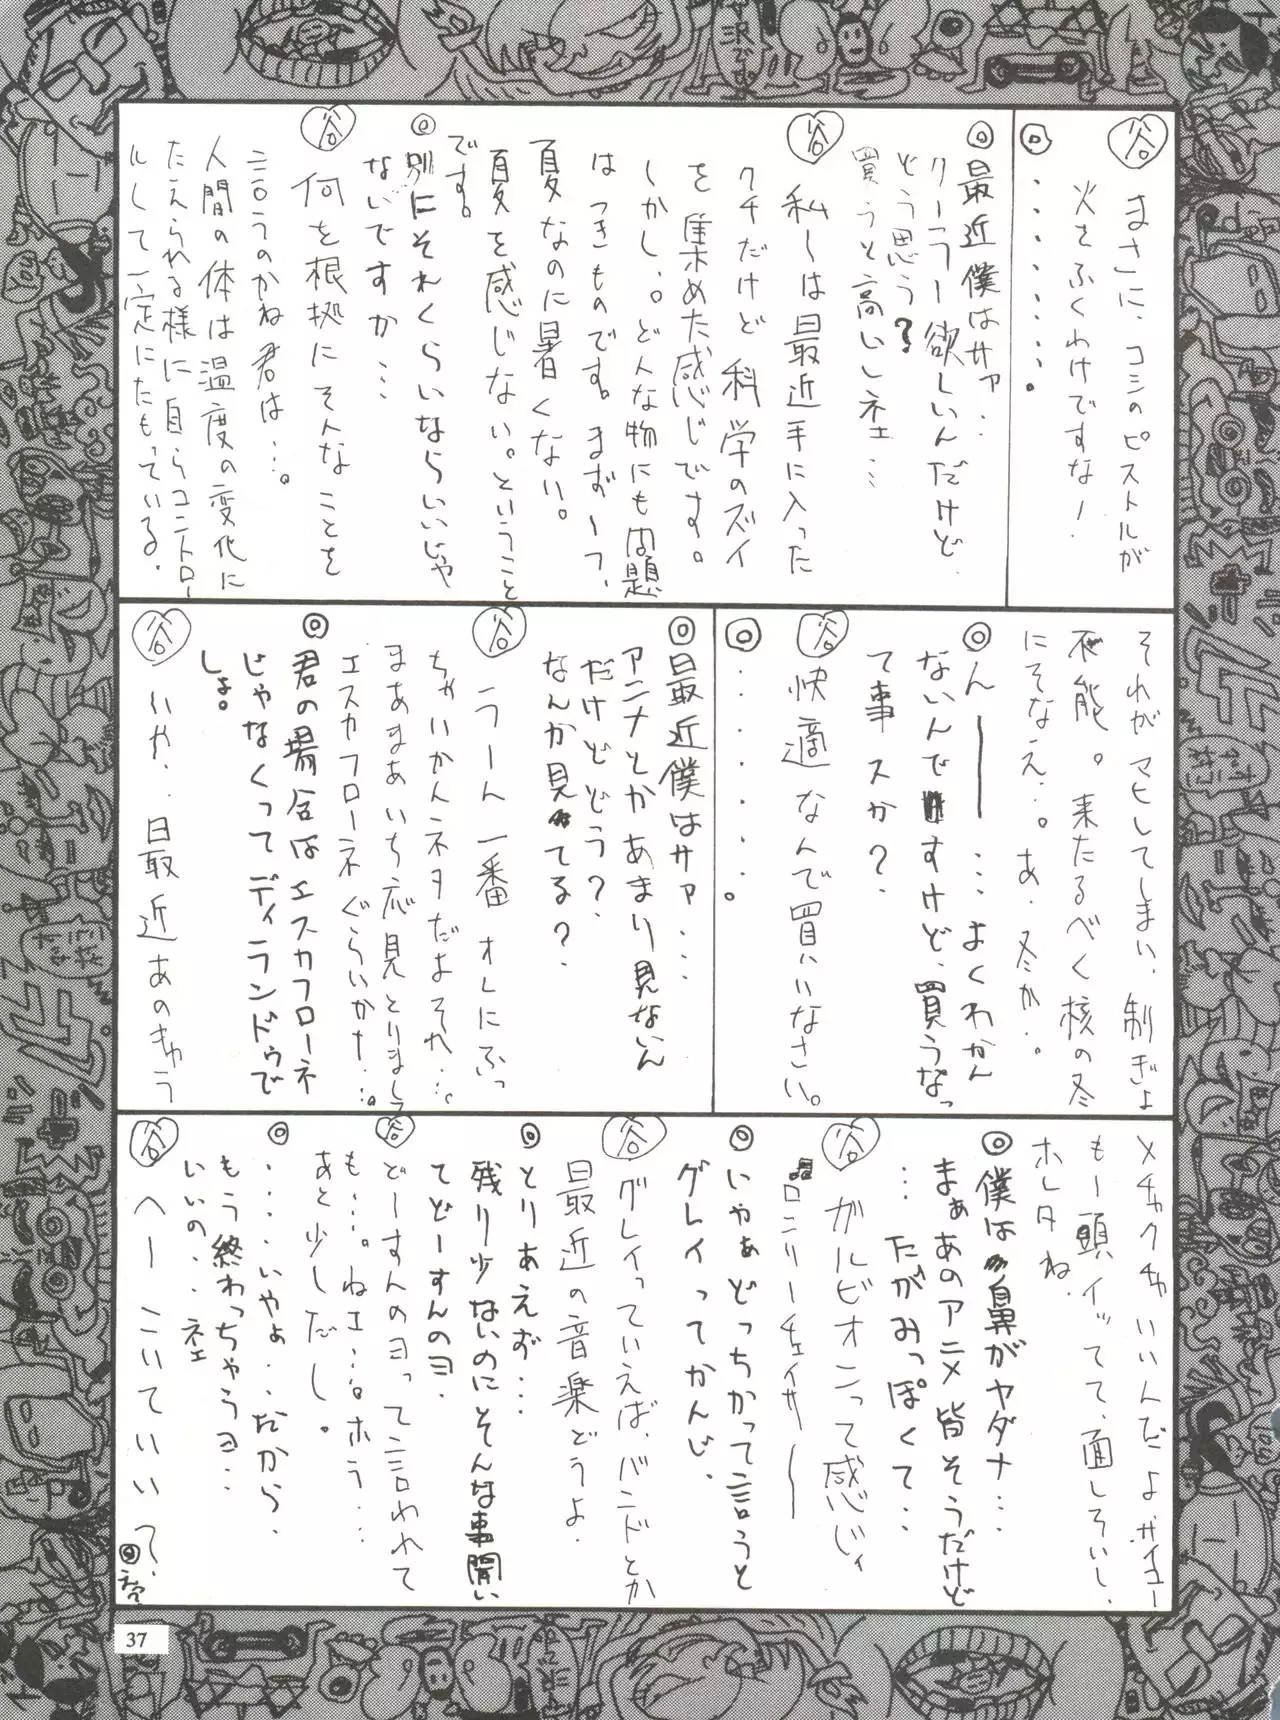 谷 まさに、コシのピストルが
火をふくわけですな!
◎・・・・・・・・。
◎最近僕はサァ・・・
クーラー欲しいんだけど、
どう思う?
買うと高いしネェ・・・
谷 私〜は最近手に入った
クチだけど科学のズイ
を集めた感じです。
しかし、。どんな物にも問題
はつきものです。まず一つ、
夏なのに暑くない。
夏を感じない。ということ
です。
◎別にそれくらいならいいじゃ
ないですか・・・
谷 何を根拠にそんなことを
言うのかね君は・・・。
人間の体は温度の変化に
たえられる様に自らコントロー
ルして一定にたもっている。
それがマヒしてしまい、制ぎょ
不能。来たるべく核の冬
にそなえ・・。あ、冬か・。
◎んー・・・よくわかん
ないんですけど、買うなっ
て事スか?
谷 快適なんで買いなさい。
◎・・・・・・。
◎最近僕はサァ・・・
アニメとかあまり見ないん
だけどどう?
なんか見てる?
谷 うーん一番オレにふっ
ちゃいかんネタだよそれ・・・。
まあまあいち応見とりまして
エスカフローネぐらいかナ・・。
◎君の場合はエスカフローネ
じゃなくってディランドゥで
しょ。
谷 いや・最近あのきゅう
メチャクチャいいんだよ、サイコー
もー頭イッてて、面しろいし、
ホレタね、
◎僕は鼻がヤダナ・・・
まぁあのアニメ皆そうだけど
・・・たがみっぽくて・・
谷 ガルビオンって感じィ
♬ロンリーチェイサー〜
◎いやぁどっちかって言うと
グレイってかんじ、
谷 グレイっていえば、バンドとか
最近の音楽どうよ、
◎とりあえず・・・
残り少ないのにそんな事聞い
てどーすんのヨ、
谷 どーすんのヨって言われて
も・・・。ねェ・・・。ホラ・・・
あと少しだし。
◎・・・・いやよ・・だから、
もう終わっちゃうヨ・・
いいの・・ネェ
谷 へー こいていい?
37